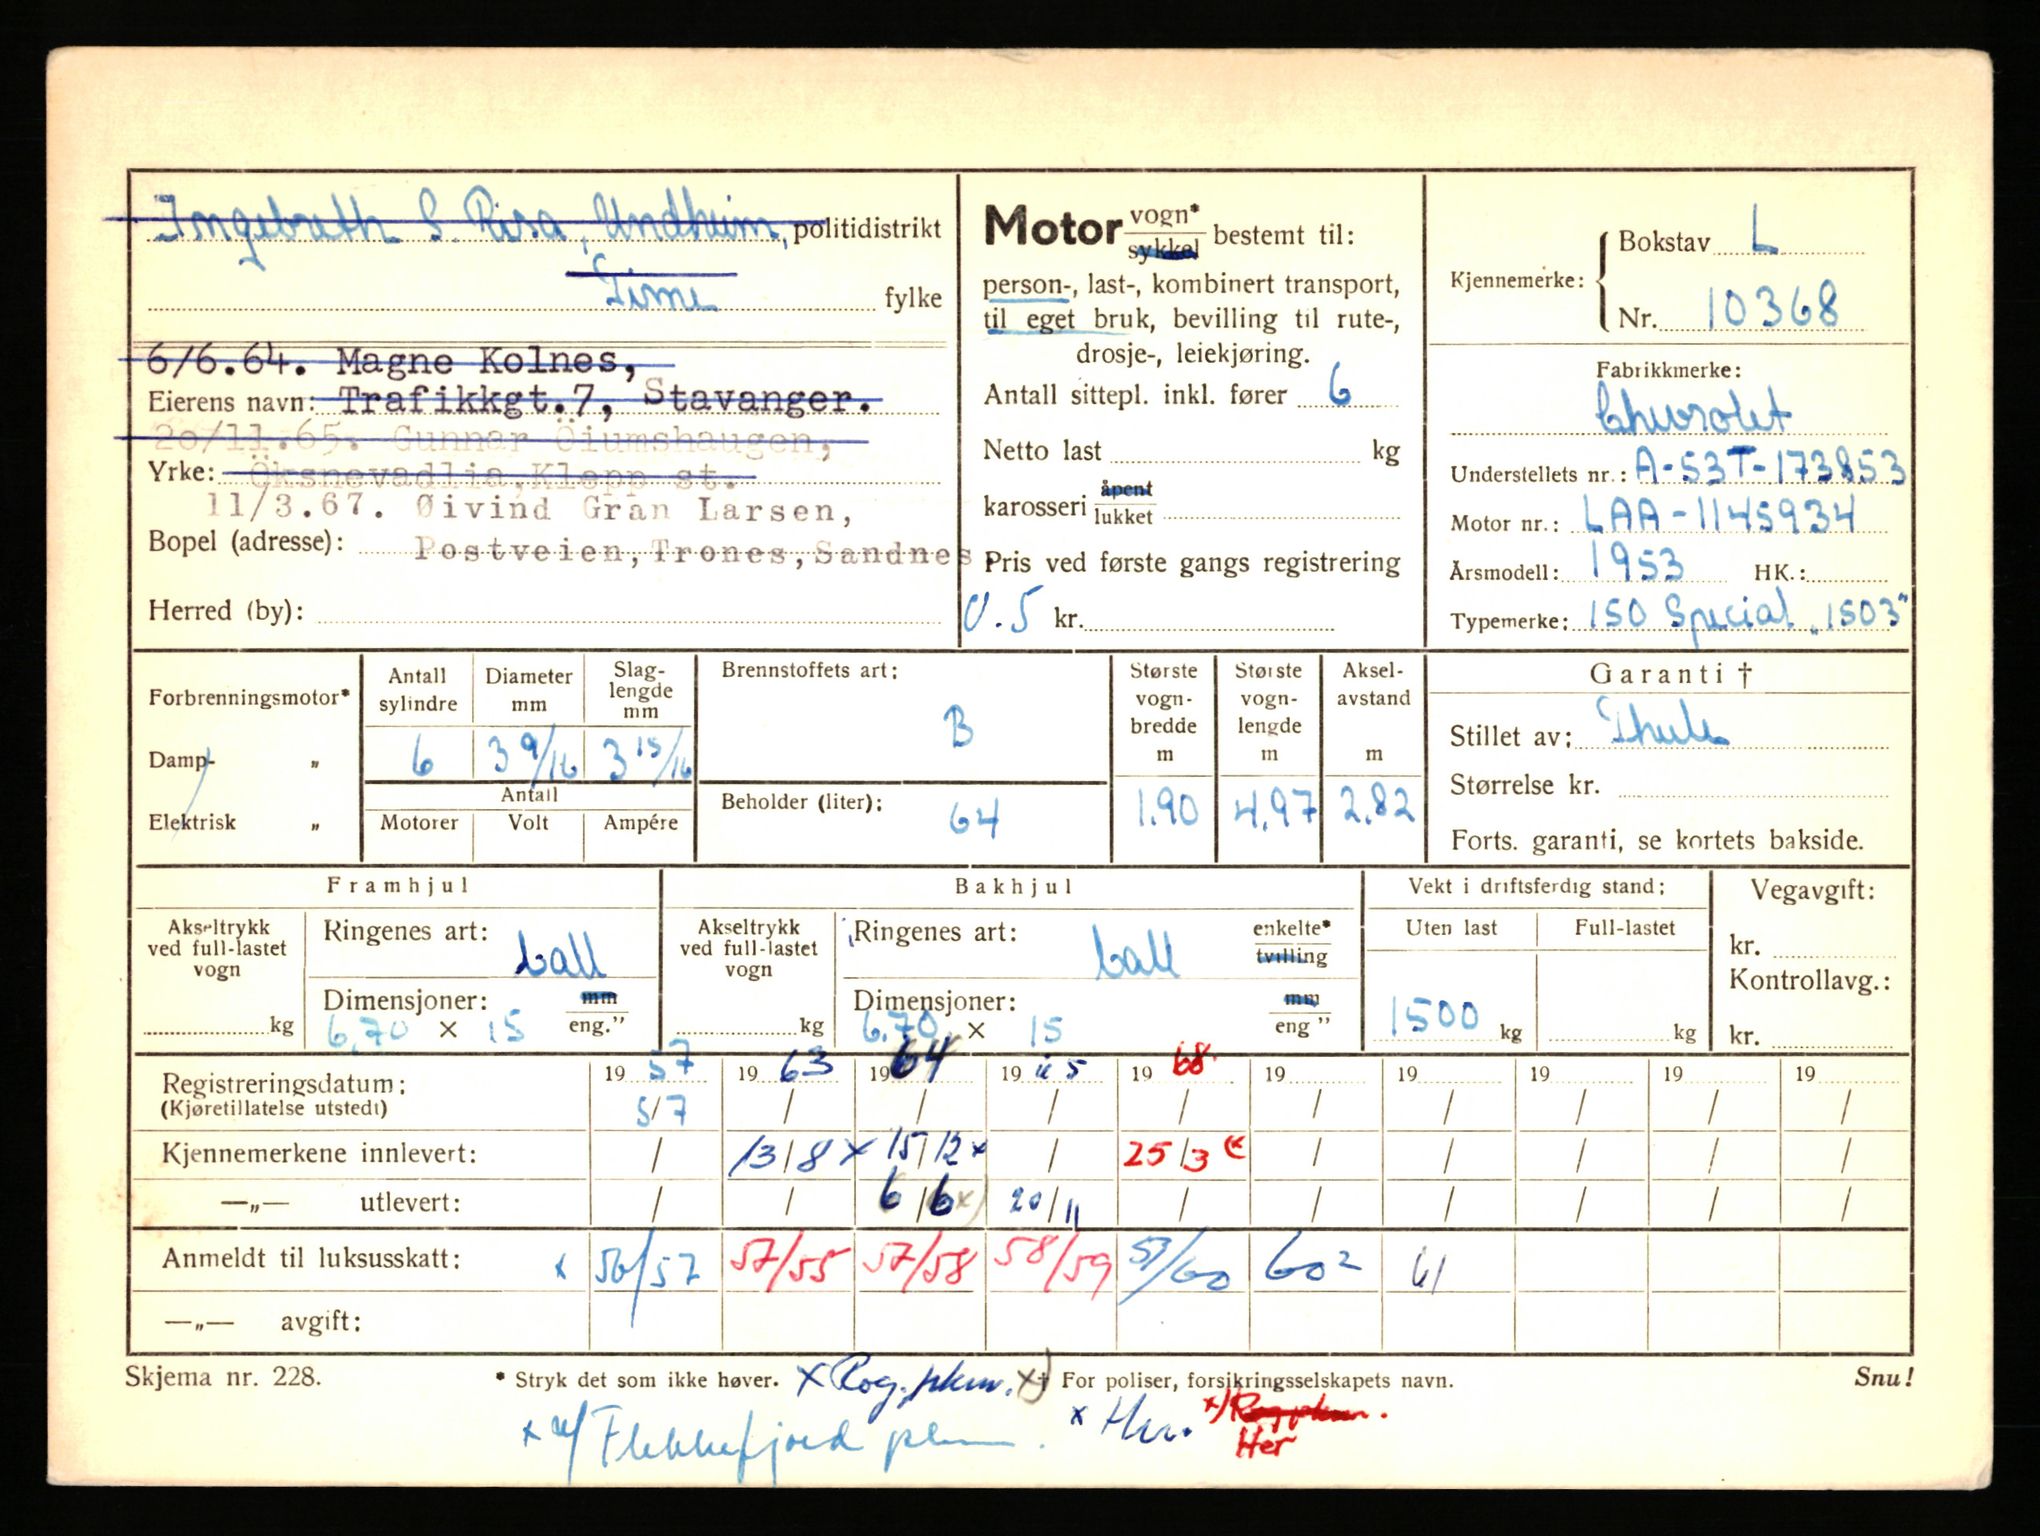 Ingebreth S. Risa, Undheim, politidistrikt
Time fylke
6/6.64. Magne Kolnes,
Eierens navn: Trafikkgt.7, Stavanger.
20/11.65. Gunnar Öiumshaugen,
Yrke: Öksnevadlia, Klepp st.
11/3.67. Øivind Gran Larsen,
Bopel (adresse): Postveien, Trones, Sandnes.
Herred (by):
Motor vogn* sykkel bestemt til:
person-, last-, kombinert transport,
til eget bruk, bevilling til rute-,
drosje-, leiekjøring.
Antall sittepl. inkl. fører 6
Netto last kg
karosseri åpent lukket
Pris ved første gangs registrering
U.S kr.
Kjennemerke: Bokstav L
Nr. 10368
Fabrikkmerke:
Chevrolet
Understellets nr.: A-53T-173853
Motor nr.: LAA-1145934
Årsmodell: 1953 HK.:
Typemerke: 150 Special "1503"
Forbrenningsmotor*
Damp- "
Elektrisk "
Antall sylindre
6
Diameter mm
3 9/16
Slag-lengde mm
3 15/16
Antall
Motorer Volt Ampére
Brennstoffets art:
B
Beholder (liter):
64
Største vogn-bredde m
1.90
Største vogn-lengde m
4.97
Aksel-avstand m
2.82
Garanti †
Stillet av: Thule
Størrelse kr.
Forts. garanti, se kortets bakside.
Framhjul
Akseltrykk ved full-lastet vogn
kg
Ringenes art: ball
Dimensjoner: mm
6.70 x 15 eng."
Bakhjul
Akseltrykk ved full-lastet vogn
kg
Ringenes art: ball enkelte* tvilling
Dimensjoner: mm
6.70 x 15 eng "
Vekt i driftsferdig stand:
Uten last Full-lastet
1500 kg kg
Vegavgift:
kr.
Kontrollavg.:
kr.
Registreringsdatum: 19 57 19 63 19 64 19 65 19 68 19 19 19 19 19
(Kjøretillatelse utstedt) 5/7 / / / / / / / / /
Kjennemerkene innlevert: / 13/8 x 15/12 x / 25/3 x / / / / /
—„— utlevert: / / 6/6 x) 20/11 / / / / / /
Anmeldt til luksusskatt: x 56/57 57/55 57/58 58/59 59/60 602 61
—„— avgift:
Skjema nr. 228. * Stryk det som ikke høver. x Rog. pkm. x) † For poliser, forsikringsselskapets navn. Snu!
x Her. x) Rog pkm.
Her
x Flekkefjord pkm.